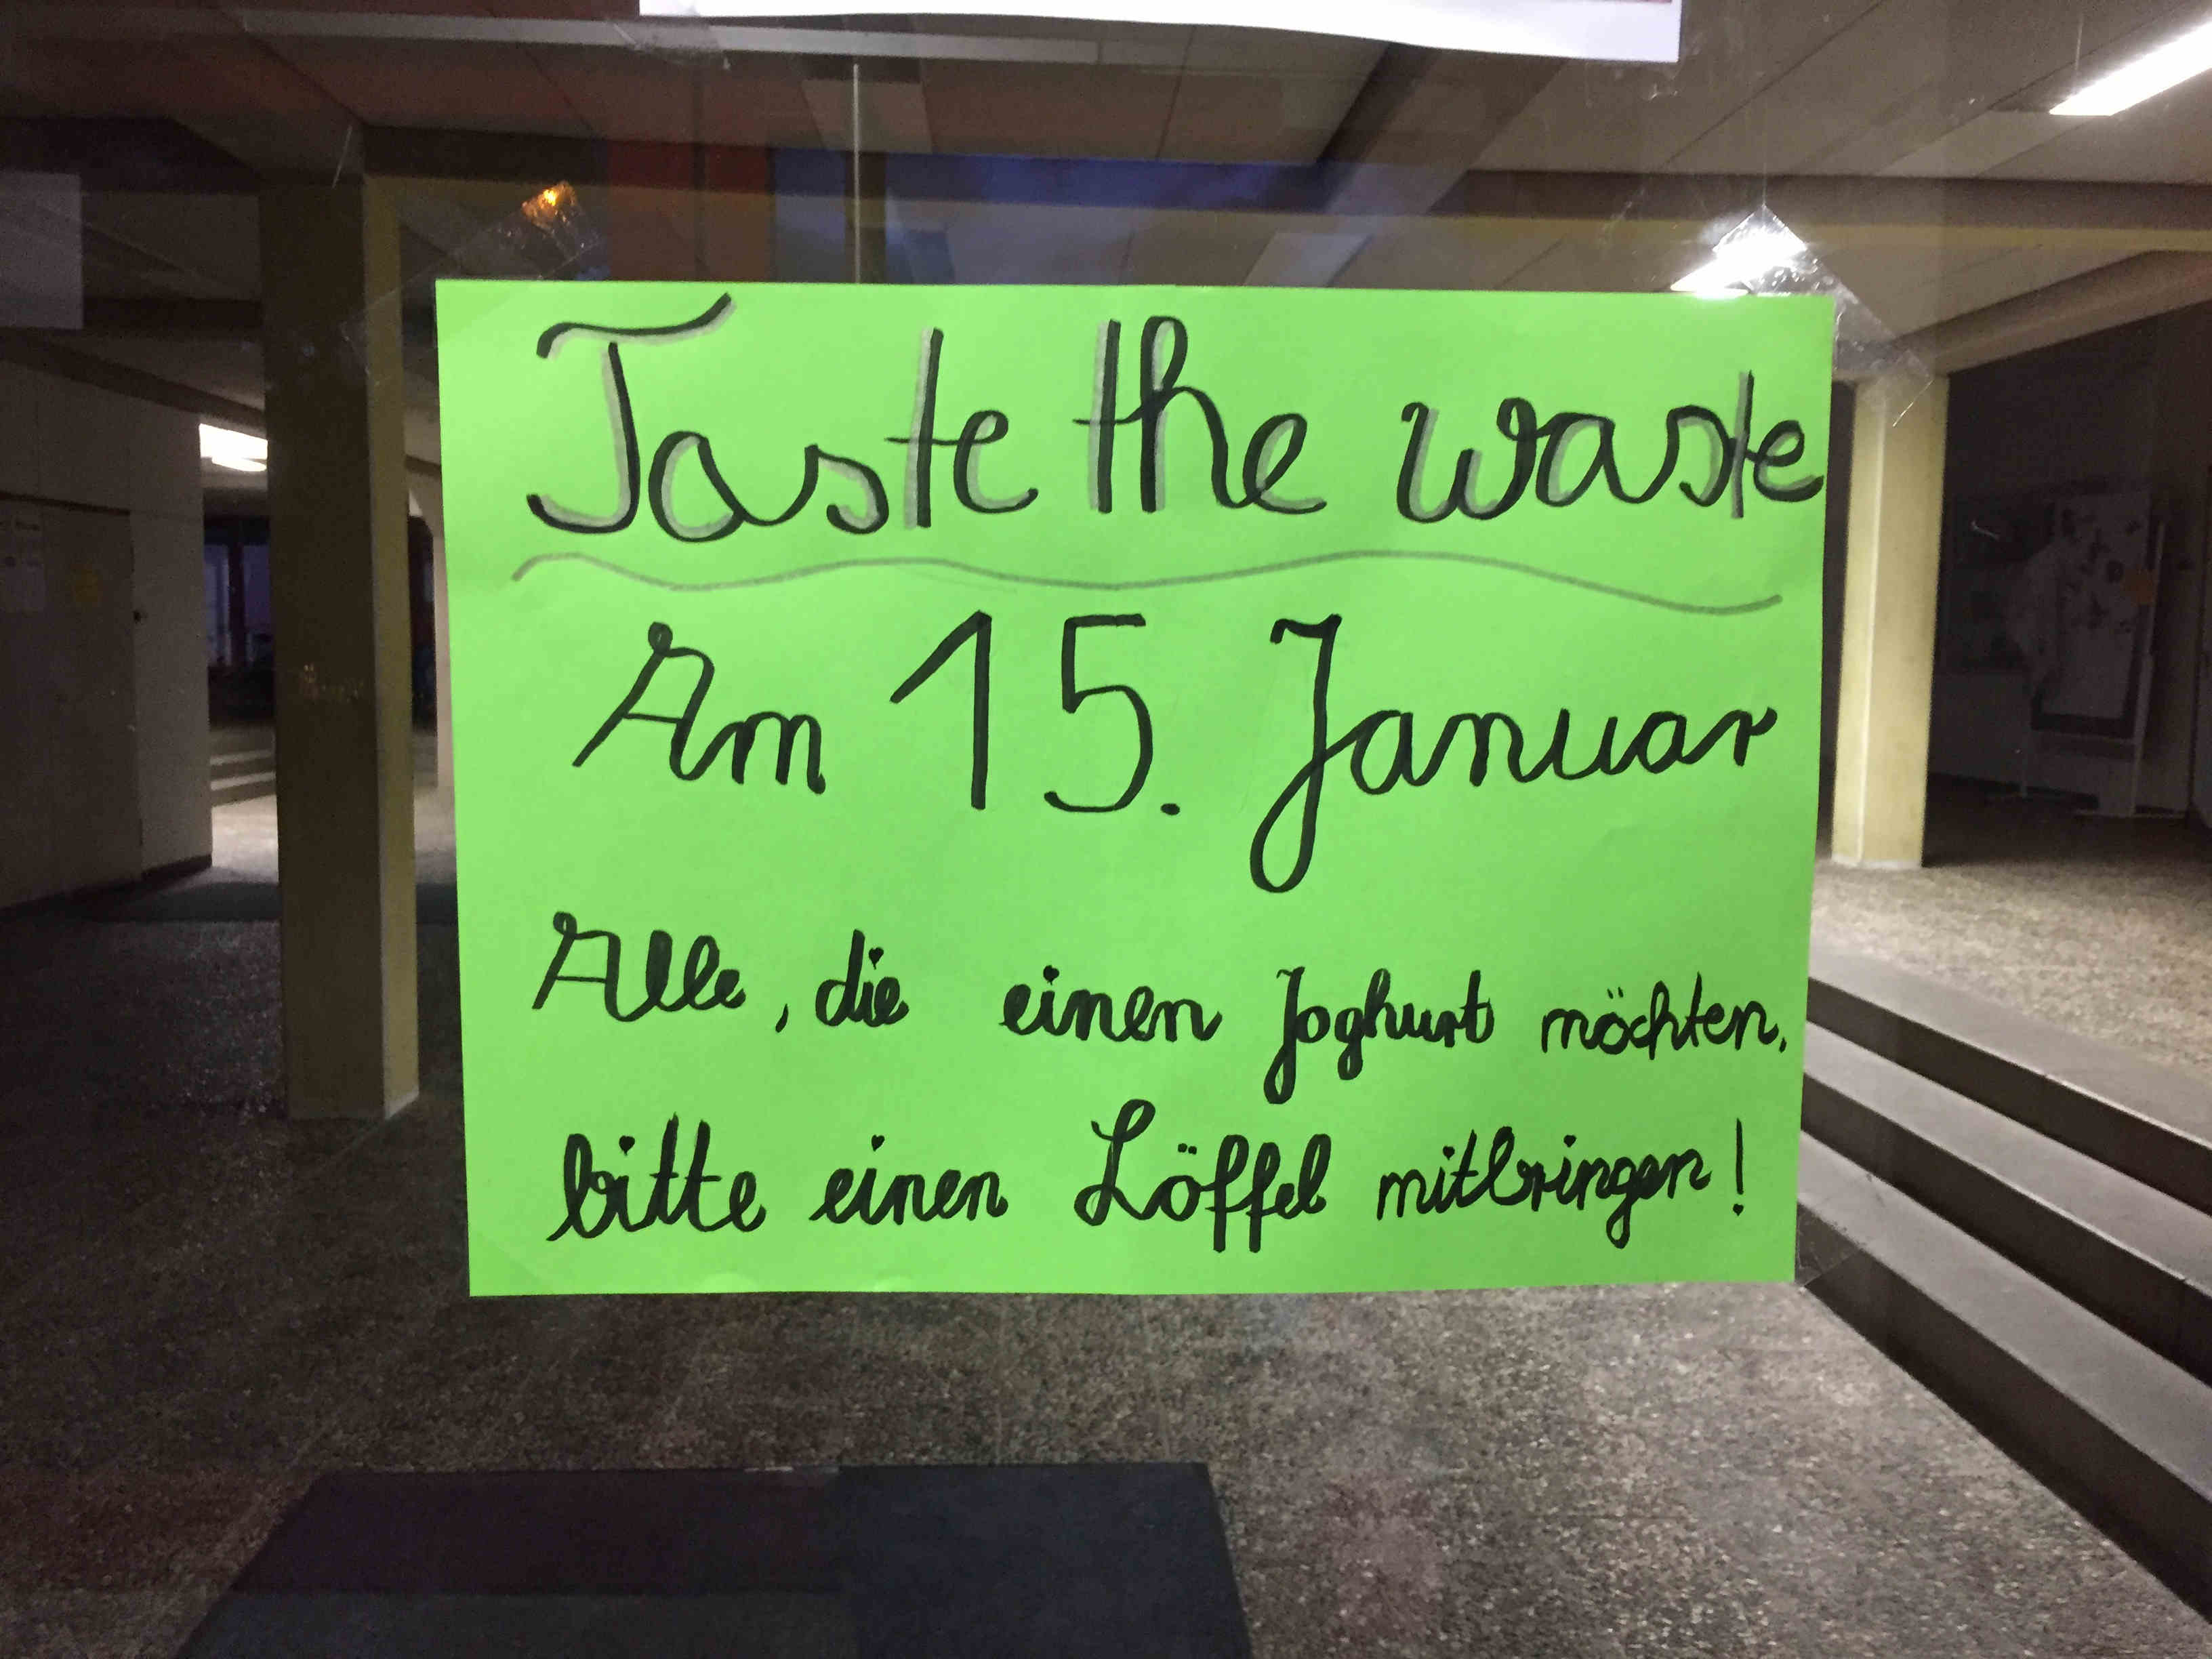 Taste the waste
Am 15. Januar
Alle, die einen Joghurt möchten,
bitte einen Löffel mitbringen!